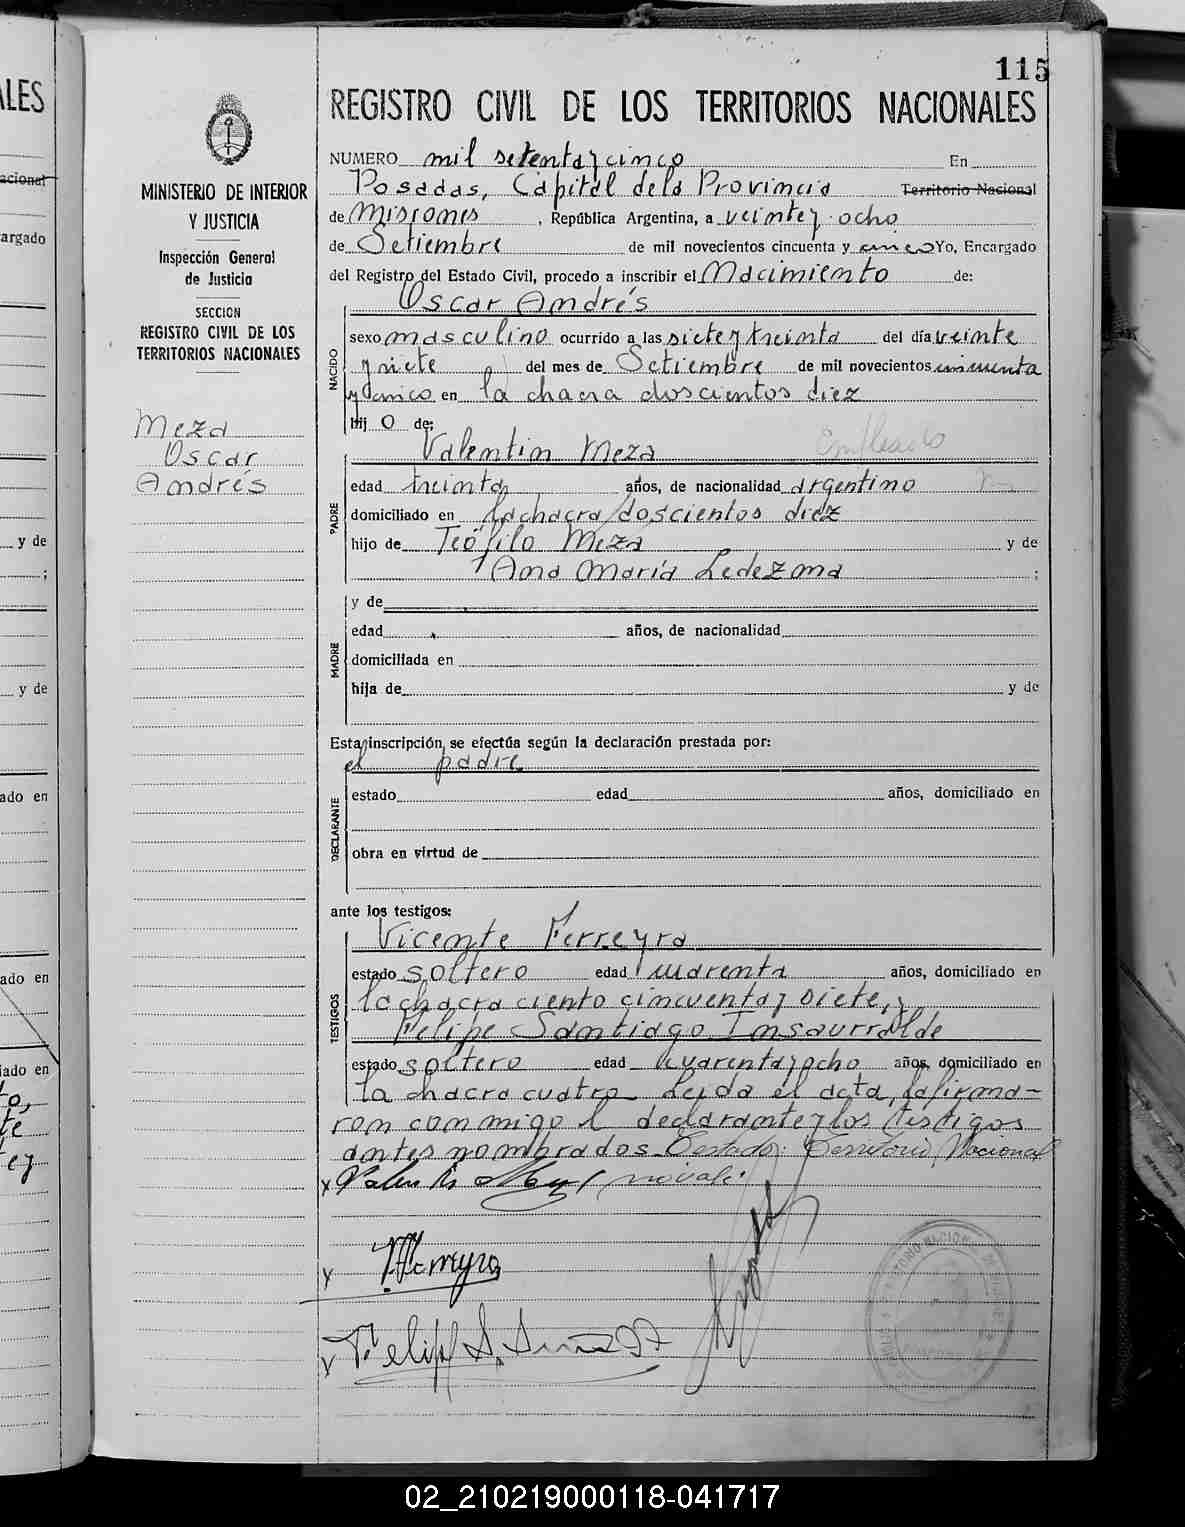 115
REGISTRO CIVIL DE LOS TERRITORIOS NACIONALES
MINISTERIO DE INTERIOR
Y JUSTICIA
Inspección General
de Justicia
SECCION
REGISTRO CIVIL DE LOS
TERRITORIOS NACIONALES
Meza
Oscar
Andrés
NUMERO mil setenta y cinco En
Posadas, Capital de la Provincia Territorio Nacional
de Misiones, República Argentina, a veinte y ocho
de Setiembre de mil novecientos cincuenta y cinco Yo, Encargado
del Registro del Estado Civil, procedo a inscribir el Nacimiento de:
Oscar Andrés
NACIDO
sexo masculino ocurrido a las siete y treinta del día veinte
y siete del mes de Setiembre de mil novecientos cincuenta
y cinco en la chacra doscientos diez
hij o de:
Valentin Meza Empleado
PADRE
edad treinta años, de nacionalidad argentino
domiciliado en la chacra doscientos diez
hijo de Teófilo Meza y de
Ana María Ledezma ;
MADRE
y de
edad años, de nacionalidad
domiciliada en
hija de y de
Esta inscripción se efectúa según la declaración prestada por:
el padre
DECLARANTE
estado edad años, domiciliado en
obra en virtud de
ante los testigos:
Vicente Ferreyra
TESTIGOS
estado soltero edad cuarenta años, domiciliado en
la chacra ciento cincuenta y siete, y
Felipe Santiago Insaurralde
estado soltero edad cuarenta y ocho años, domiciliado en
la chacra cuatro Leida el acta, la firma-
ron conmigo el declarante y los testigos
antes nombrados Testado: Territorio Nacional
no vale.
x Valentin Meza
x Ferreyra
x Felipe S.
ALES
acional
argado
y de
;
y de
ado en
ado en
iado en
to,
te
ey
02_210219000118-041717